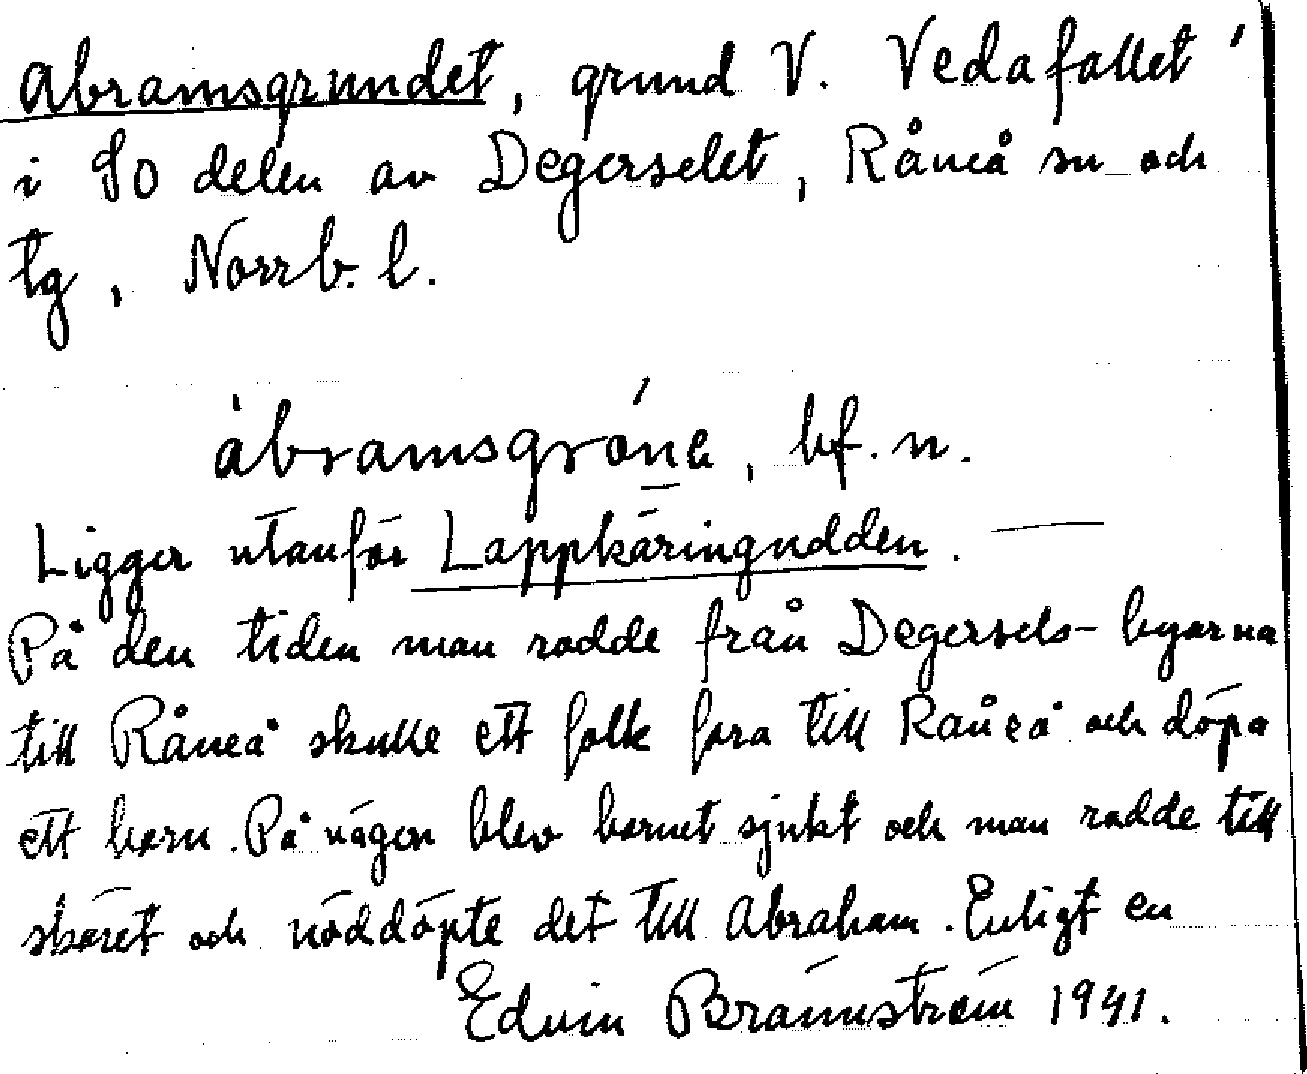 Abramsgrundet, grund V. Vedafallet
i SO delen av Degerselet, Råneå sn och
tg, Norrb. l.
àbramsgróṉe, bf. n.
Ligger utanför Lappkäringudden. —
På den tiden man rodde från Degersels-byarna
till Råneå skulle ett folk fara till Råneå och döpa
ett barn. På vägen blev barnet sjukt och man rodde till
skäret och nöddöpte det till Abraham. Enligt en
Edvin Brännström 1941.